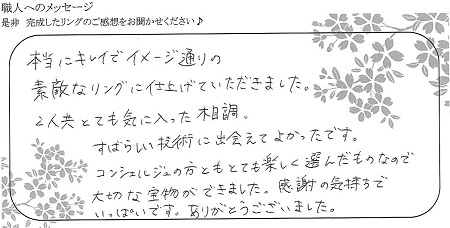 職人へのメッセージ
是非 完成したリングのご感想をお聞かせください♪
本当にキレイでイメージ通りの
素敵なリングに仕上げていただきました。
2人共とても気に入った木目調。
すばらしい技術に出会えてよかったです。
コンシェルジュの方ともとても楽しく選んだものなので
大切な宝物ができました。感謝の気持ちで
いっぱいです。ありがとうございました。